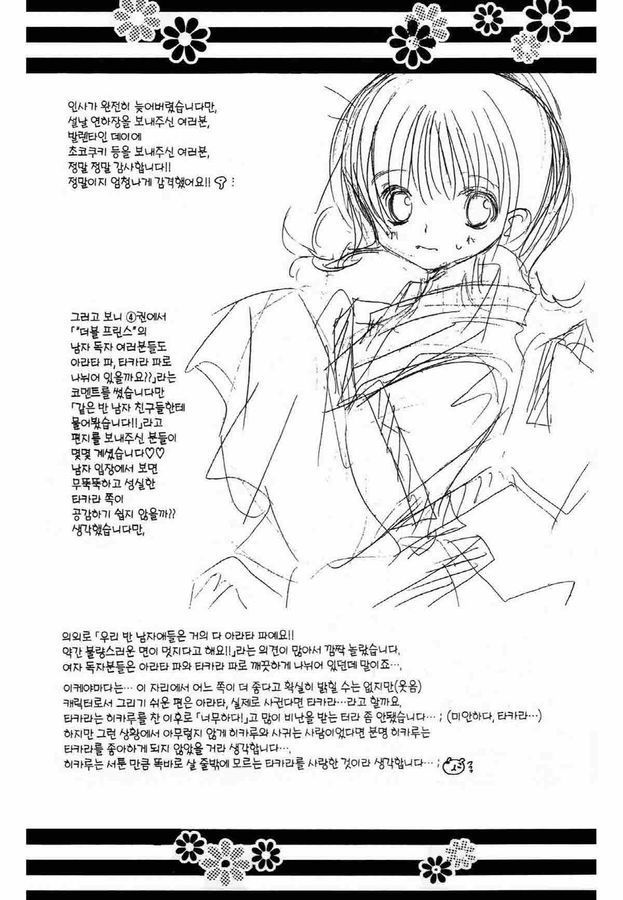 인사가 완전히 늦어버렸습니다만,
설날 연하장을 보내주신 여러분,
발렌타인 데이에
초코쿠키 등을 보내주신 여러분,
정말 정말 감사합니다!!
정말이지 엄청나게 감격했어요!!
그러고 보니 ④권에서
「"더블 프린스"의
남자 독자 여러분들도
아라타 파, 타카라 파로
나뉘어 있을까요??」라는
코멘트를 썼습니다만
「같은 반 남자 친구들한테
물어봤습니다!!」라고
편지를 보내주신 분들이
몇몇 계셨습니다♡♡
남자 입장에서 보면
무뚝뚝하고 성실한
타카라 쪽이
공감하기 쉽지 않을까??
생각했습니다만,
의외로 「우리 반 남자애들은 거의 다 아라타 파예요!!
약간 불량스러운 면이 멋지다고 해요!!」라는 의견이 많아서 깜짝 놀랐습니다.
여자 독자분들은 아라타 파와 타카라 파로 깨끗하게 나뉘어 있던데 말이죠…,
이케야마다는… 이 자리에서 어느 쪽이 더 좋다고 확실히 밝힐 수는 없지만(웃음)
캐릭터로서 그리기 쉬운 편은 아라타, 실제로 사귄다면 타카라…라고 할까요,
타카라는 히카루를 찬 이후로 「너무하다!」고 많이 비난을 받는 터라 좀 안됐습니다… ; (미안하다, 타카라…)
하지만 그런 상황에서 아무렇지 않게 히카루와 사귀는 사람이었다면 분명 히카루는
타카라를 좋아하게 되지 않았을 거라 생각합니다…,
히카루는 서툰 만큼 똑바로 살 줄밖에 모르는 타카라를 사랑한 것이라 생각합니다… ;